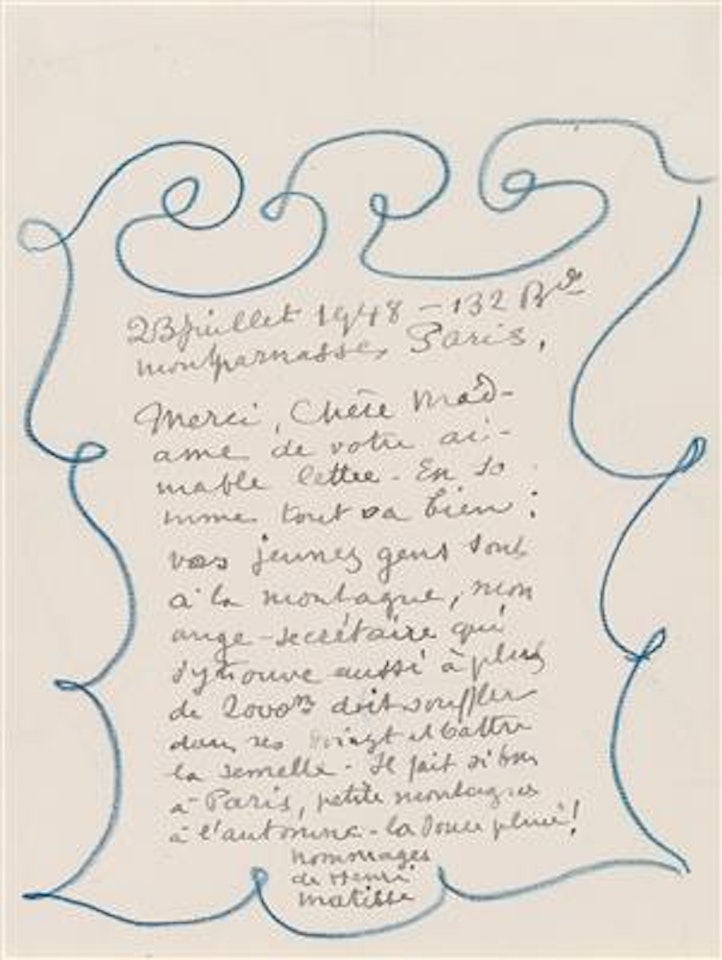 23 juillet 1948 - 132 Bd
montparnasse, Paris,
Merci, Chère Mad-
ame de votre ai-
mable lettre - En so
mme tout va bien :
vos jeunes gens sont
à la montagne, mon
ange-secrétaire qui
s'y trouve aussi à plus
de 2000m doit souffler
dans ses doigts et battre
la semelle - Il fait si bon
à Paris, petite montagne
à l'automne - la douce pluie!
hommages
de Henri
matisse